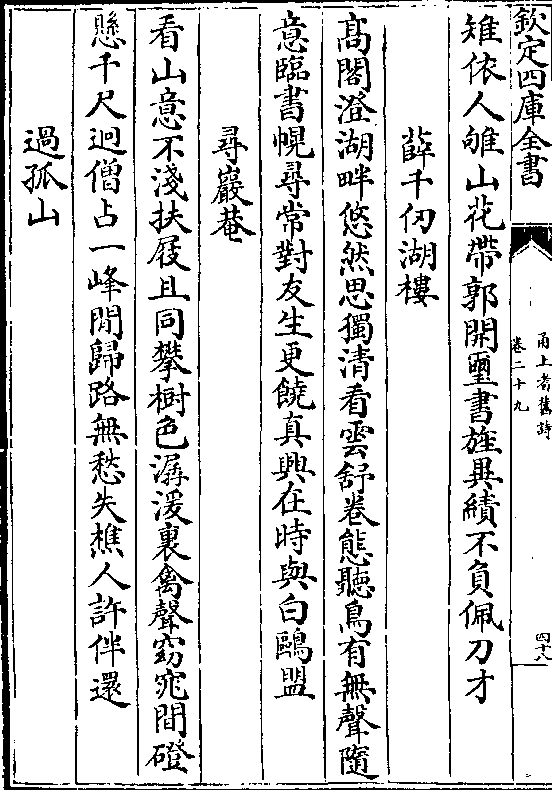 欽定四庫全書
甬上耆舊詩
卷二十九
四十八
雉依人雊山花帶郭開璽書旌異績不負佩刀才
薛千仞湖樓
高閣澄湖畔悠然思獨清看雲舒卷態聽鳥有無聲隨
意臨書幌尋常對友生更饒真興在時與白鷗盟
尋巖菴
看山意不淺扶屐且同攀樹色潺湲裏禽聲窈窕間磴
懸千尺迥僧占一峰閒歸路無愁失樵人許伴還
過孤山